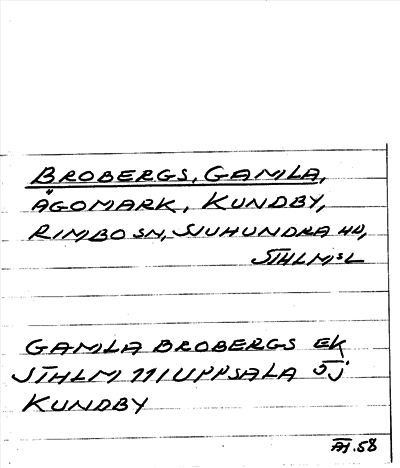 BROBERGS, GAMLA,
ÄGOMARK, KUNDBY,
RIMBO SN, SJUHUNDRA HD,
STHLM:S L
GAMLA BROBERGS EK
STHLM 111 UPPSALA 5j
KUNDBY
AJ.58